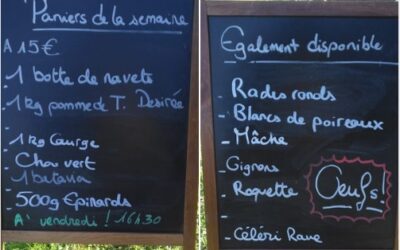 Paniers de la semaine
A 15€
1 botte de navets
1kg pomme de T. Desirée
1kg Courge
Chou vert
1 batavia
500g Epinards
A' vendredi ! 16h30
Egalement disponible
- Radis ronds
- Blancs de poireaux
- Mâche
- Gignons
- Roquette
- Céléri Rave
Oeufs!